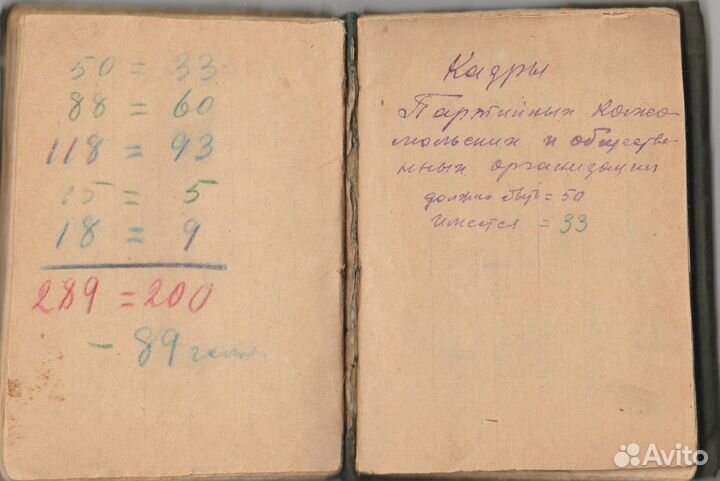 50 = 33
88 = 60
118 = 93
15 = 5
18 = 9
289 = 200
- 89 чел.
Кадры
Партийных комсо-
мольских и обществе-
нных организации
должно быть = 50
имеется = 33
Avito